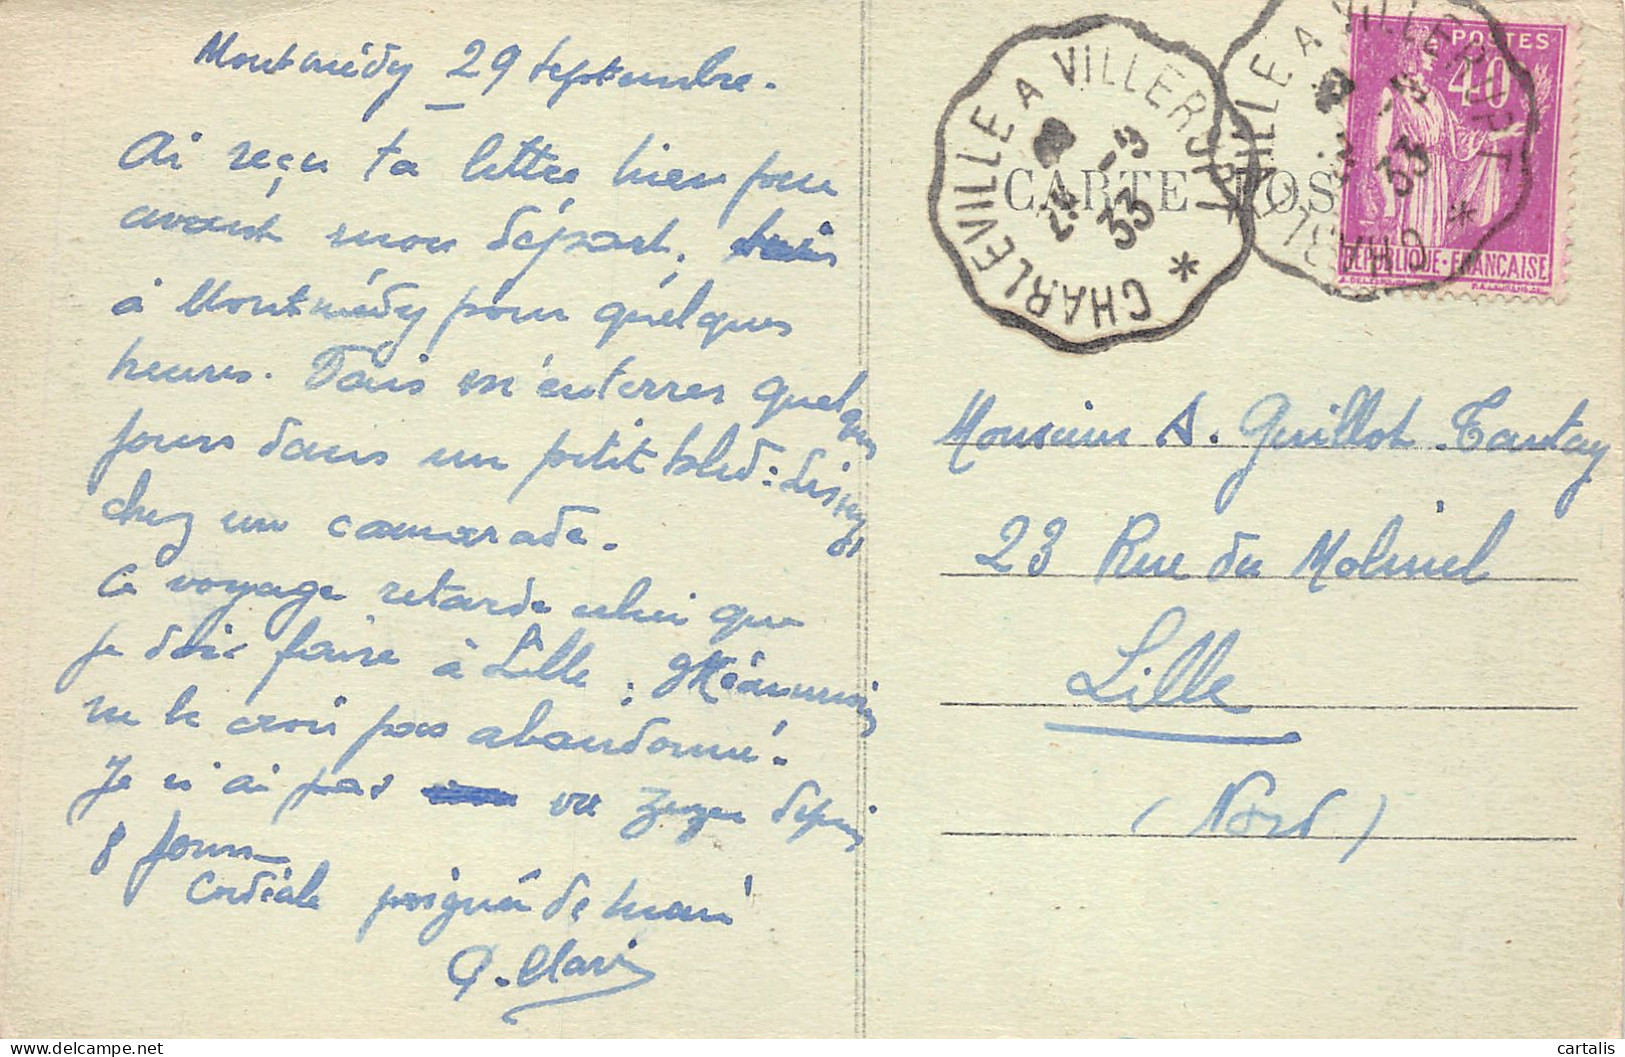 Montmédy 29 septembre.
Ai reçu ta lettre hier jour
avant mon départ. suis
à Montmédy pour quelques
heures. Vais m'enterrer quelques
jours dans un petit bled :
chez un camarade.
Ce voyage retarde celui que
je dois faire à Lille ; néanmoins
ne le crois pas abandonné.
Je n'ai pas vu depuis
8 jours
Cordiale poignée de main
CARTE POS
CHARLEVILLE A VILLERUPT *
33
CHARLEVILLE A VILLERUPT *
33
POSTES
40
REPUBLIQUE·FRANÇAISE
Monsieur A. Guillot-Tantay
23 Rue du Molinel
Lille
(Nord)
cartalis